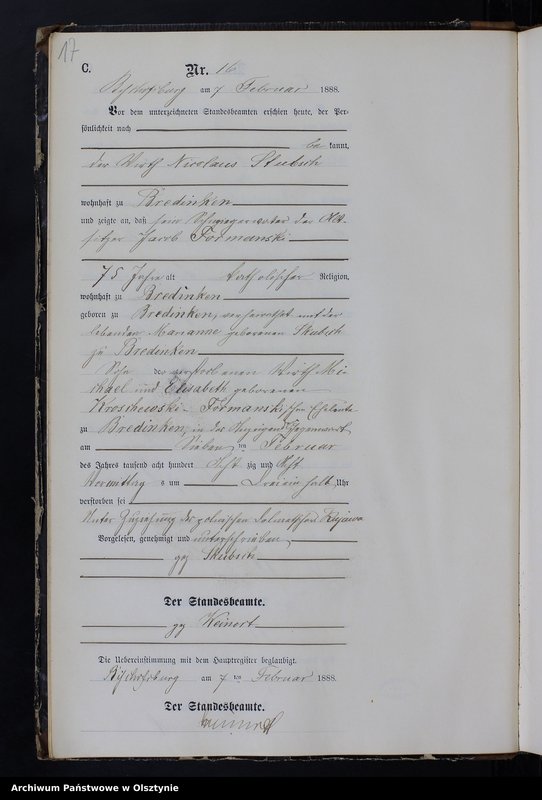 17
C.
Nr. 16
Bischofsburg am 7 Februar 1888.
Vor dem unterzeichneten Standesbeamten erschien heute, der Per-
sönlichkeit nach
be kannt,
der Wirth Nicolaus Skubsch
wohnhaft zu Bredinken
und zeigte an, daß sein Schwiegervater der Alt-
sitzer Jacob Formanski
75 Jahre alt katholischer Religion,
wohnhaft zu Bredinken
geboren zu Bredinken, verheirathet mit der
lebenden Marianne geborenen Skubsch
zu Bredinken
Sohn der verstorbenen Wirth Mi-
chael und Elisabeth geborenen
Formanskischen Eheleute
zu Bredinken, in des Anzeigers Gegenwart
am Sieben ten Februar
des Jahres tausend acht hundert Acht zig und Acht
Vormittag s um Uhr
verstorben sei
Unter Zuziehung des polnischen Dolmetscher Kujawa
Vorgelesen, genehmigt und unterschrieben
gez Skubsch
Der Standesbeamte.
gez Weinert
Die Uebereinstimmung mit dem Hauptregister beglaubigt.
Bischofsburg am 7 ten Februar 1888.
Der Standesbeamte.
Weinert
Archiwum Państwowe w Olsztynie